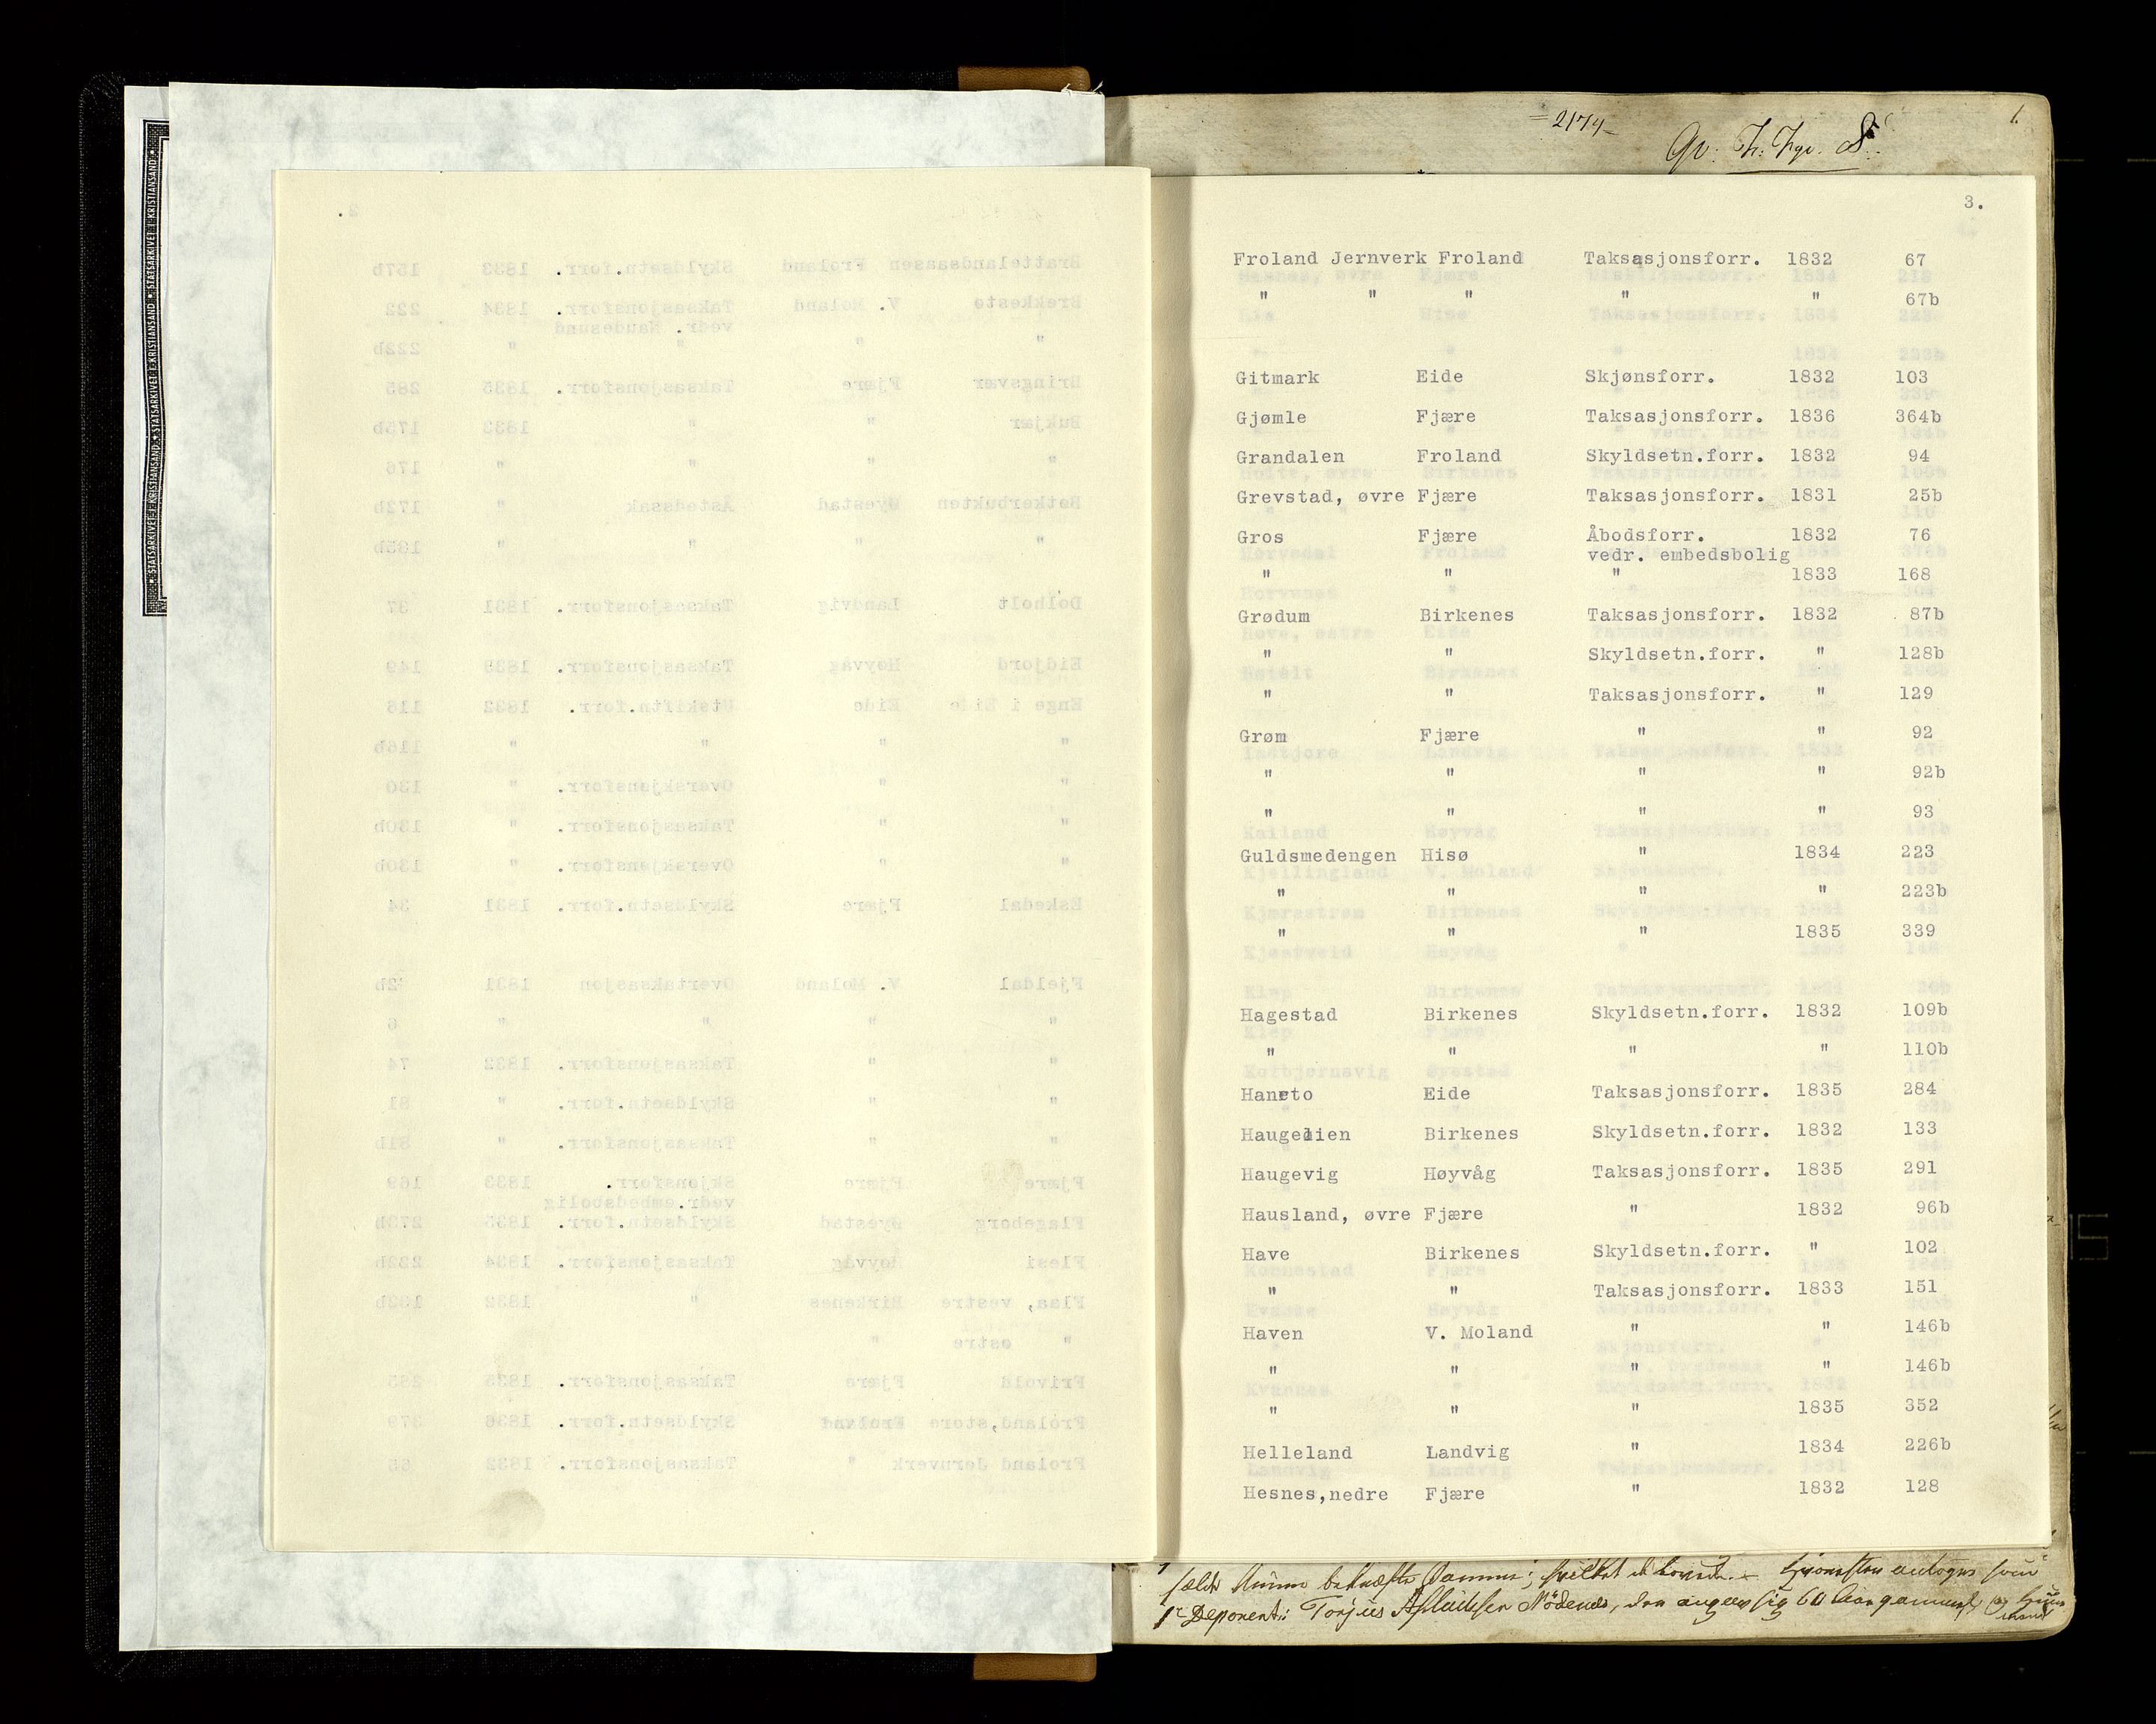 STATSARKIVET I KRISTIANSAND ★ STATSARKIVET I KRISTIANSAND ★ STATSARKIVET I KRISTIANSAND
= 2174 –
1.
3.
Froland Jernverk Froland Taksasjonsforr. 1832 67
" " " " " 67b
Gitmark Eide Skjønsforr. 1832 103
Gjømle Fjære Taksasjonsforr. 1836 364b
Grandalen Froland Skyldsetn.forr. 1832 94
Grevstad, øvre Fjære Taksasjonsforr. 1831 25b
Gros Fjære Åbodsforr. 1832 76
vedr. embedsbolig
" " " 1833 168
Grødum Birkenes Taksasjonsforr. 1832 87b
" " Skyldsetn.forr. " 128b
" " Taksasjonsforr. " 129
Grøm Fjære " " 92
" " " " 92b
" " " " 93
Guldsmedengen Hisø " 1834 223
" " " " 223b
" " " 1835 339
Hagestad Birkenes Skyldsetn.forr. 1832 109b
" " " " 110b
Hanrto Eide Taksasjonsforr. 1835 284
Haugelien Birkenes Skyldsetn.forr. 1832 133
Haugevig Høyvåg Taksasjonsforr. 1835 291
Hausland, øvre Fjære " 1832 96b
Have Birkenes Skyldsetn.forr. " 102
" " Taksasjonsforr. 1833 151
Haven V. Moland " " 146b
" " " " 146b
" " " 1835 352
Helleland Landvig " 1834 226b
Hesnes,nedre Fjære " 1832 128
1r Deponent: Torjus Aslaksen Nödenes, 60 Aar gammel